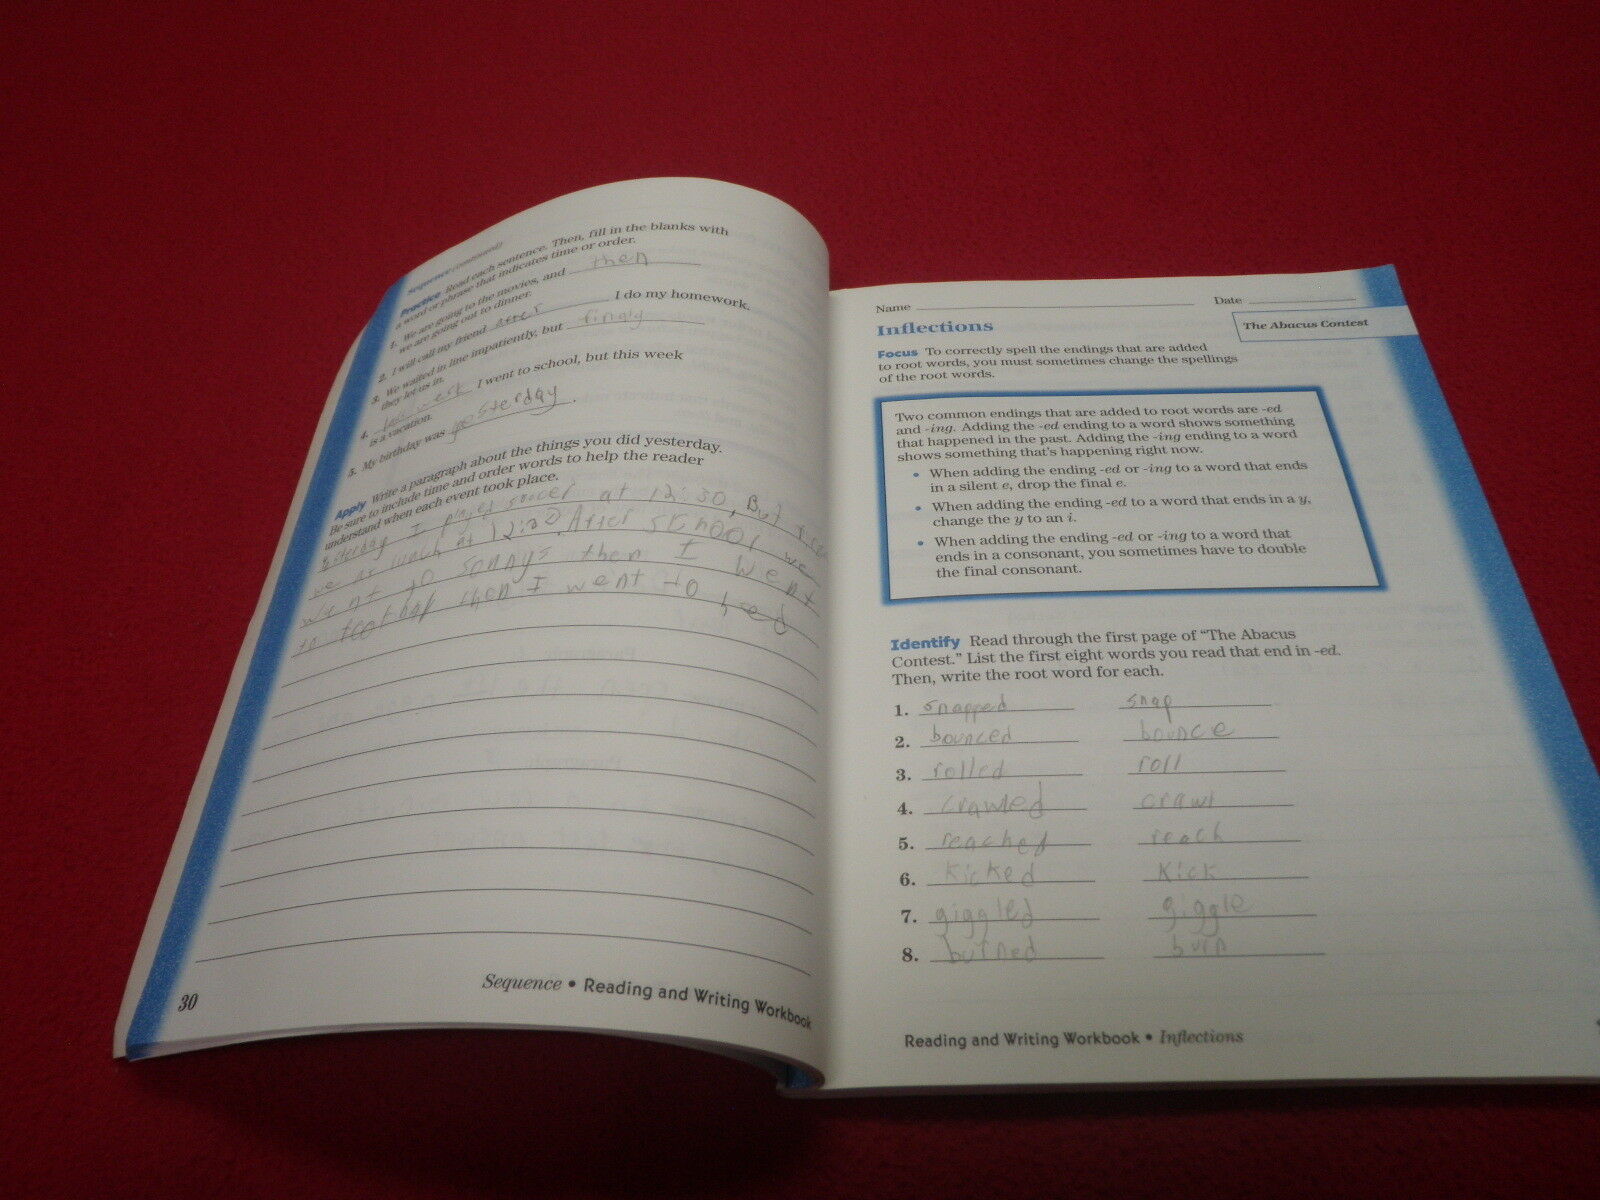 Sequence (continued)
Practice Read each sentence. Then, fill in the blanks with
a word or phrase that indicates time or order.
1. We are going to the movies, and then
we are going out to dinner.
2. I will call my friend after I do my homework.
3. We waited in line impatiently, but fingly
they let us in.
4. I went to school, but this week
is a vacation.
5. My birthday was yosterday.
Apply Write a paragraph about the things you did yesterday.
Be sure to include time and order words to help the reader
understand when each event took place.
I played soccer at 12:30, But
lunch at 12:30 After school we
went to sonnys then I went
to then I went to bed
30
Sequence • Reading and Writing Workbook
Name Date
Inflections
The Abacus Contest
Focus To correctly spell the endings that are added
to root words, you must sometimes change the spellings
of the root words.
Two common endings that are added to root words are -ed
and -ing. Adding the -ed ending to a word shows something
that happened in the past. Adding the -ing ending to a word
shows something that's happening right now.
• When adding the ending -ed or -ing to a word that ends
in a silent e, drop the final e.
• When adding the ending -ed to a word that ends in a y,
change the y to an i.
• When adding the ending -ed or -ing to a word that
ends in a consonant, you sometimes have to double
the final consonant.
Identify Read through the first page of “The Abacus
Contest.” List the first eight words you read that end in -ed.
Then, write the root word for each.
1. snapped snap
2. bounced bounce
3. rolled roll
4. crawled crawl
5. reached reach
6. kicked Kick
7. giggled giggle
8. burned burn
Reading and Writing Workbook • Inflections